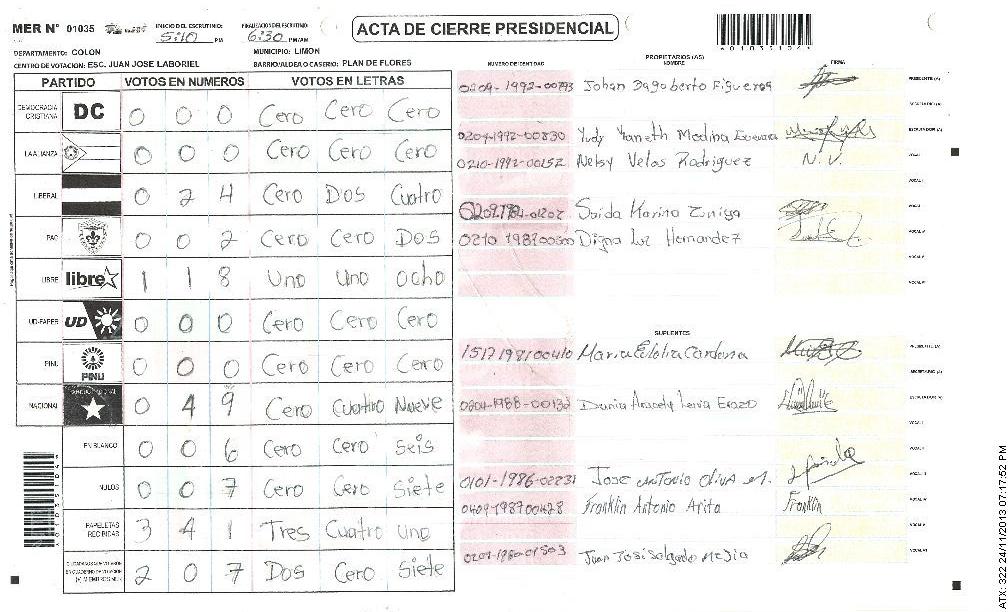 MER Nº 01035
INICIO DEL ESCRUTINIO: 5:10 PM
FINALIZACION DEL ESCRUTINIO: 6:30 PM/AM
ACTA DE CIERRE PRESIDENCIAL
DEPARTAMENTO: COLON
MUNICIPIO: LIMON
CENTRO DE VOTACION: ESC. JUAN JOSE LABORIEL
BARRIO/ALDEA O CASERIO: PLAN DE FLORES
PARTIDO VOTOS EN NUMEROS VOTOS EN LETRAS
DEMOCRACIA CRISTIANA DC 0 0 0 Cero Cero Cero
LA ALIANZA 0 0 0 Cero Cero Cero
LIBERAL 0 2 4 Cero Dos Cuatro
PAC 0 0 2 Cero Cero Dos
LIBRE libre 1 1 8 Uno Uno ocho
UD-FAPER UD 0 0 0 Cero Cero Cero
PINU PINU 0 0 0 Cero Cero Cero
NACIONAL 0 4 9 Cero Cuatro Nueve
EN BLANCO 0 0 6 Cero Cero Seis
NULOS 0 0 7 Cero Cero Siete
PAPELETAS RECIBIDAS 3 4 1 Tres Cuatro uno
2 0 7 Dos Cero Siete
PROPIETARIOS (AS)
NUMERO DE IDENTIDAD NOMBRE FIRMA
0209-1992-00793 Johan Dagoberto Figueroa PRESIDENTE (A)
SECRETARIO (A)
0209-1992-00830 Yudy Yaneth Medina Guevara ESCRUTADOR (A)
0210-1992-00152 Nelsy Velas Rodriguez N.V. VOCAL I
0209-1984-01202 Saida Marina Zuniga
0210 1987 00300 Digna Luz Hernandez
SUPLENTES
1517198100410 Maria Cardona PRESIDENTE (A)
SECRETARIO (A)
0204-1988-00132 Dunia Aracely Leiva Erazo ESCRUTADOR (A)
0101-1986-02231 Jose Antonio Oliva M.
0409198700428 Franklin Antonio Arita Franklin
0209-1980-01503 Juan Jose Salgado Mejia
ATX: 322 24/11/2013 07:17:52 PM